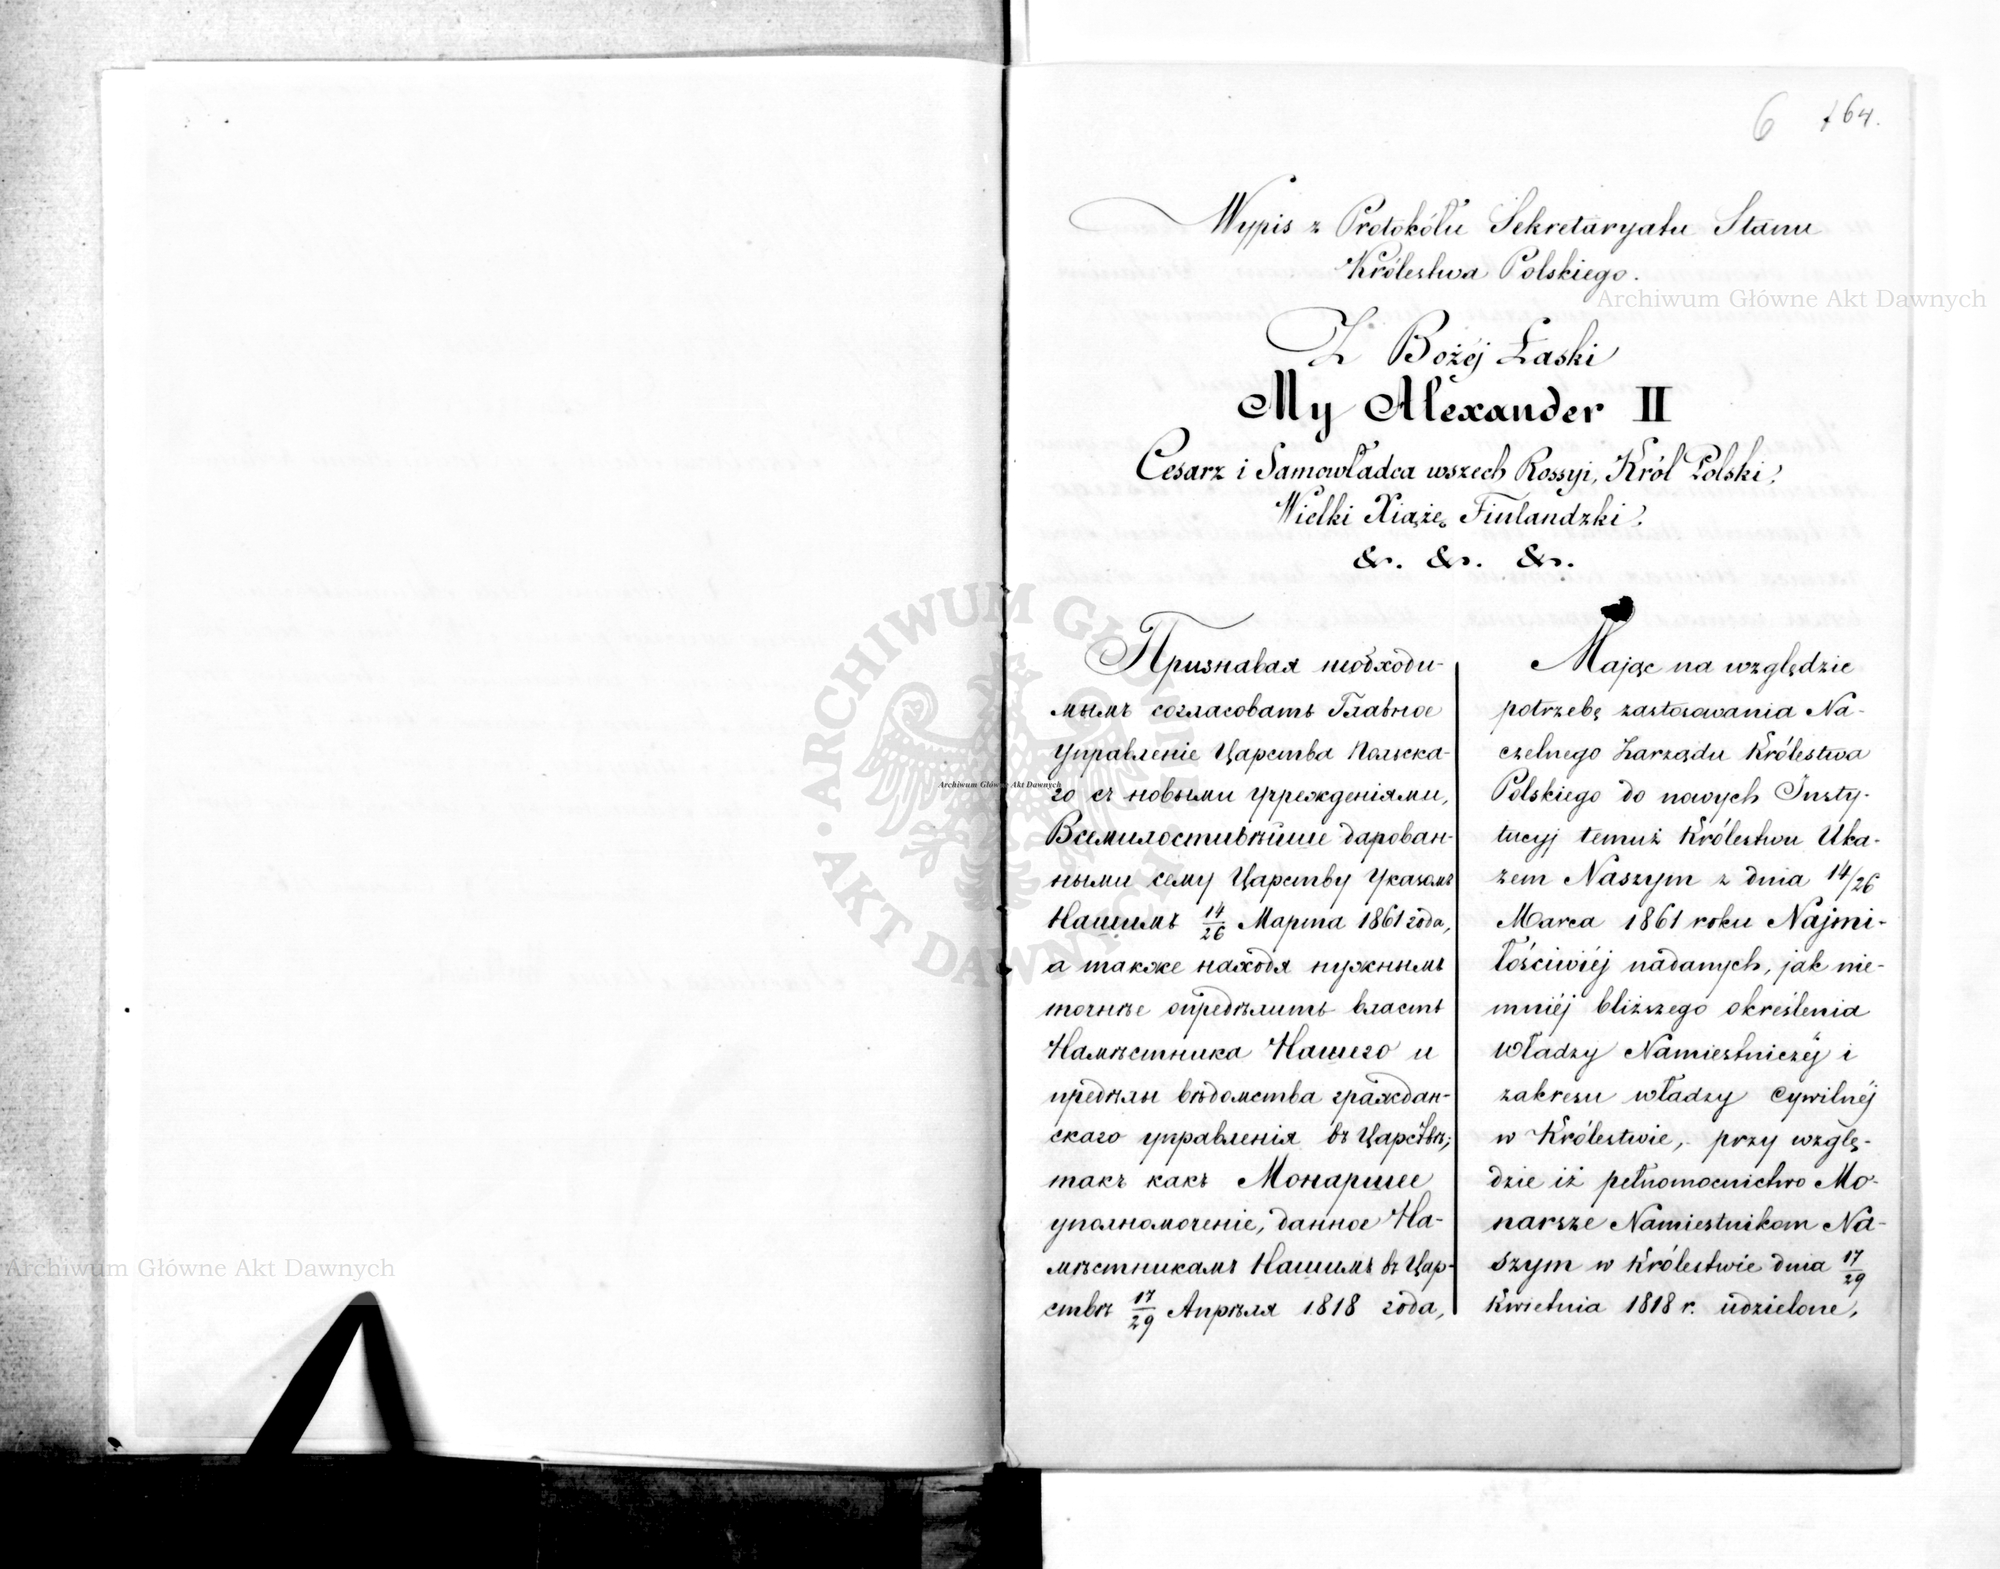 6 164.
Wypis z Protokółu Sekretaryatu Stanu
Królestwa Polskiego.
Z Bożéj Łaski
My Alexander II
Cesarz i Samowładca wszech Rossyi, Król Polski,
Wielki Xiąże Finlandzki,
&. &. &.
Признавая необходи-
мымъ согласовать Главное
Управленіе Царства Польска-
го съ новыми учрежденіями,
Всемилостивѣйше дарован-
ными сему Царству Указомъ
Нашимъ 14/26 Марта 1861 года,
а также находя нужнымъ
точнѣе опредѣлить власть
Намѣстника Нашего и
предѣлы вѣдомства граждан-
скаго управленія въ Царствѣ;
такъ какъ Монаршее
уполномоченіе, данное На-
мѣстникамъ Нашимъ въ Цар-
ствѣ 17/29 Апрѣля 1818 года,
Mając na względzie
potrzebę zastosowania Na-
czelnego Zarządu Królestwa
Polskiego do nowych Insty-
tucyj temuż Królestwu Uka-
zem Naszym z dnia 14/26
Marca 1861 roku Najmi-
łościwiéj nadanych, jak nie-
mniéj bliższego określenia
Władzy Namiestniczéj i
zakresu władzy cywilnéj
w Królestwie, przy wzglę-
dzie iż pełnomocnictwo Mo-
narsze Namiestnikom Na-
szym w Królestwie dnia 17/29
Kwietnia 1818 r. udzielone,
Archiwum Główne Akt Dawnych
Archiwum Główne Akt Dawnych
Archiwum Główne Akt Dawnych
ARCHIWUM GŁÓWNE AKT DAWNYCH